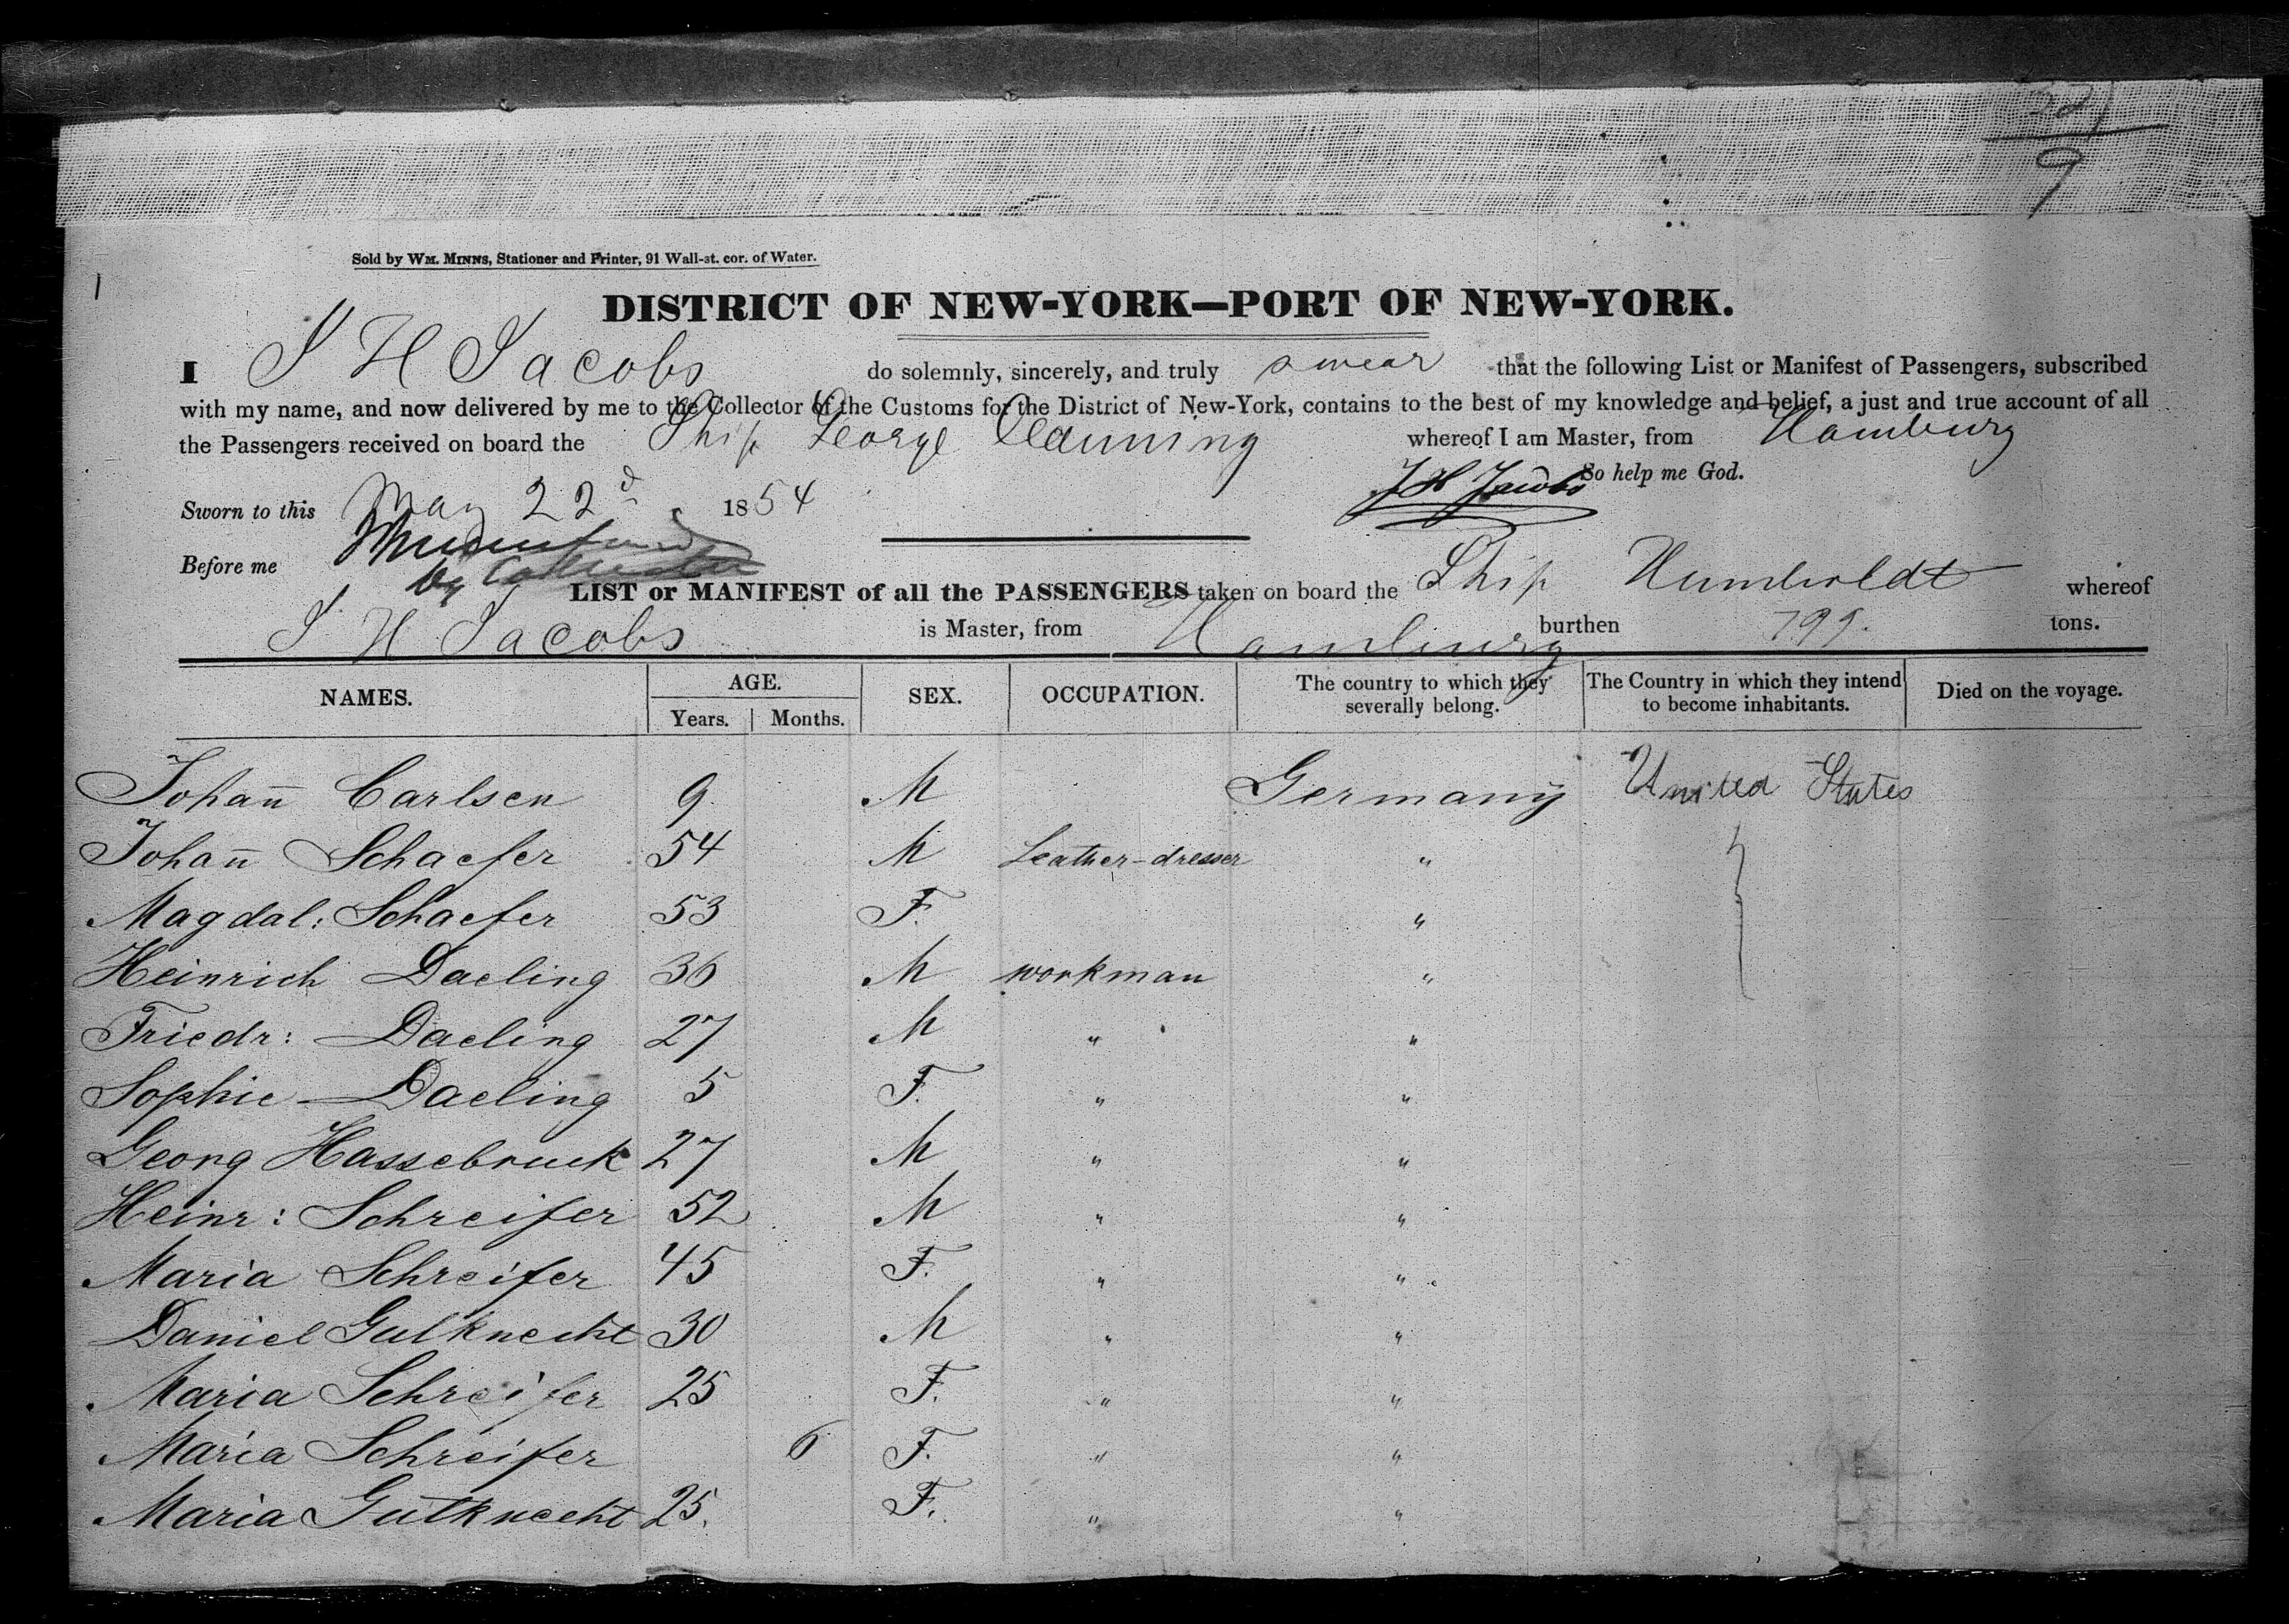 9
Sold by WM. MINNS, Stationer and Printer, 91 Wall-st. cor. of Water.
1
DISTRICT OF NEW-YORK—PORT OF NEW-YORK.
I J H Jacobs do solemnly, sincerely, and truly swear that the following List or Manifest of Passengers, subscribed
with my name, and now delivered by me to the Collector of the Customs for the District of New-York, contains to the best of my knowledge and belief, a just and true account of all
the Passengers received on board the Ship George Canning whereof I am Master, from Hamburg
J H Jacobs So help me God.
Sworn to this May 22d 1854
Before me
LIST or MANIFEST of all the PASSENGERS taken on board the Ship Humboldt whereof
J H Jacobs is Master, from Hamburg burthen 799. tons.
NAMES. AGE. SEX. OCCUPATION. The country to which they severally belong. The Country in which they intend to become inhabitants. Died on the voyage.
Years. Months.
Johan̅ Carlsen 9 M Germany United States
Johan̅ Schaefer 54 M Leather-dresser "
Magdal: Schaefer 53 F. "
Heinrich Daeling 36 M workman "
Friedr: Daeling 27 M " "
Sophie Daeling 5 F. " "
Georg Hassebruck 27 M " "
Heinr: Schreifer 52 M " "
Maria Schreifer 45 F. " "
Daniel Gutknecht 30 M " "
Maria Schreifer 25 F. " "
Maria Schreifer 6 F. " "
Maria Gutknecht 25. F. " "